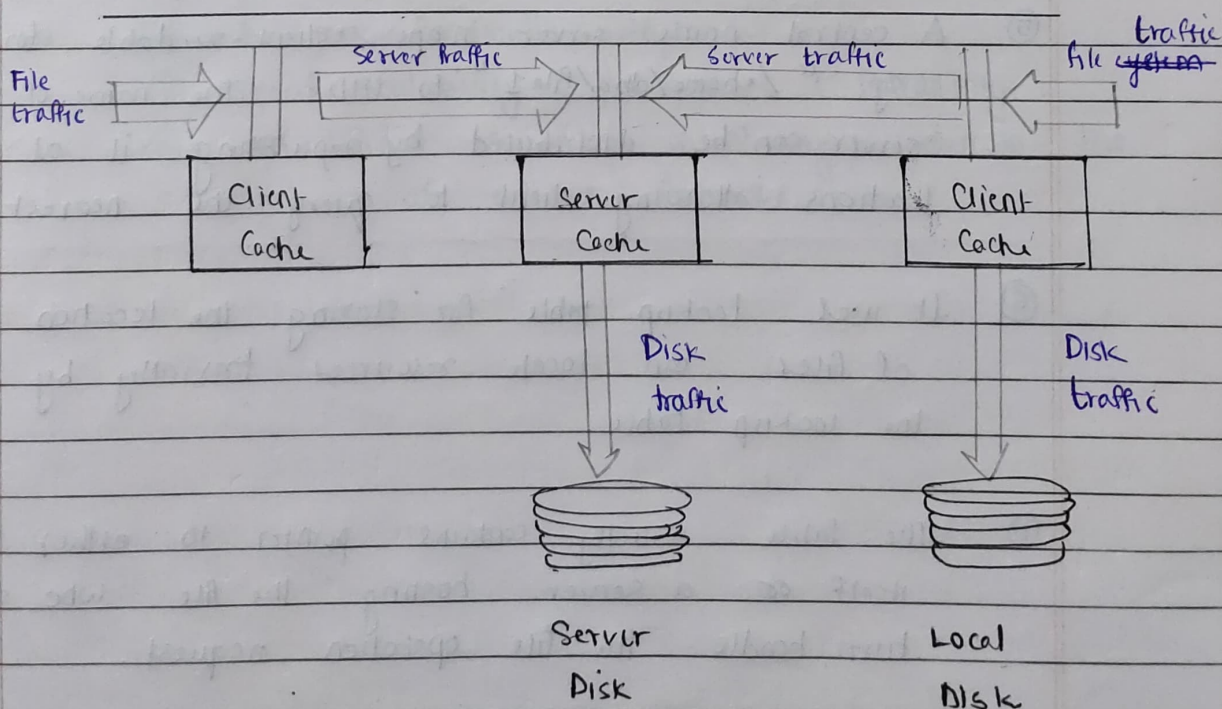 File
traffic
Server traffic
Server traffic
traffic
file system
Client
Cache
Server
Cache
Client
Cache
Disk
traffic
Disk
traffic
Server
Disk
Local
Disk